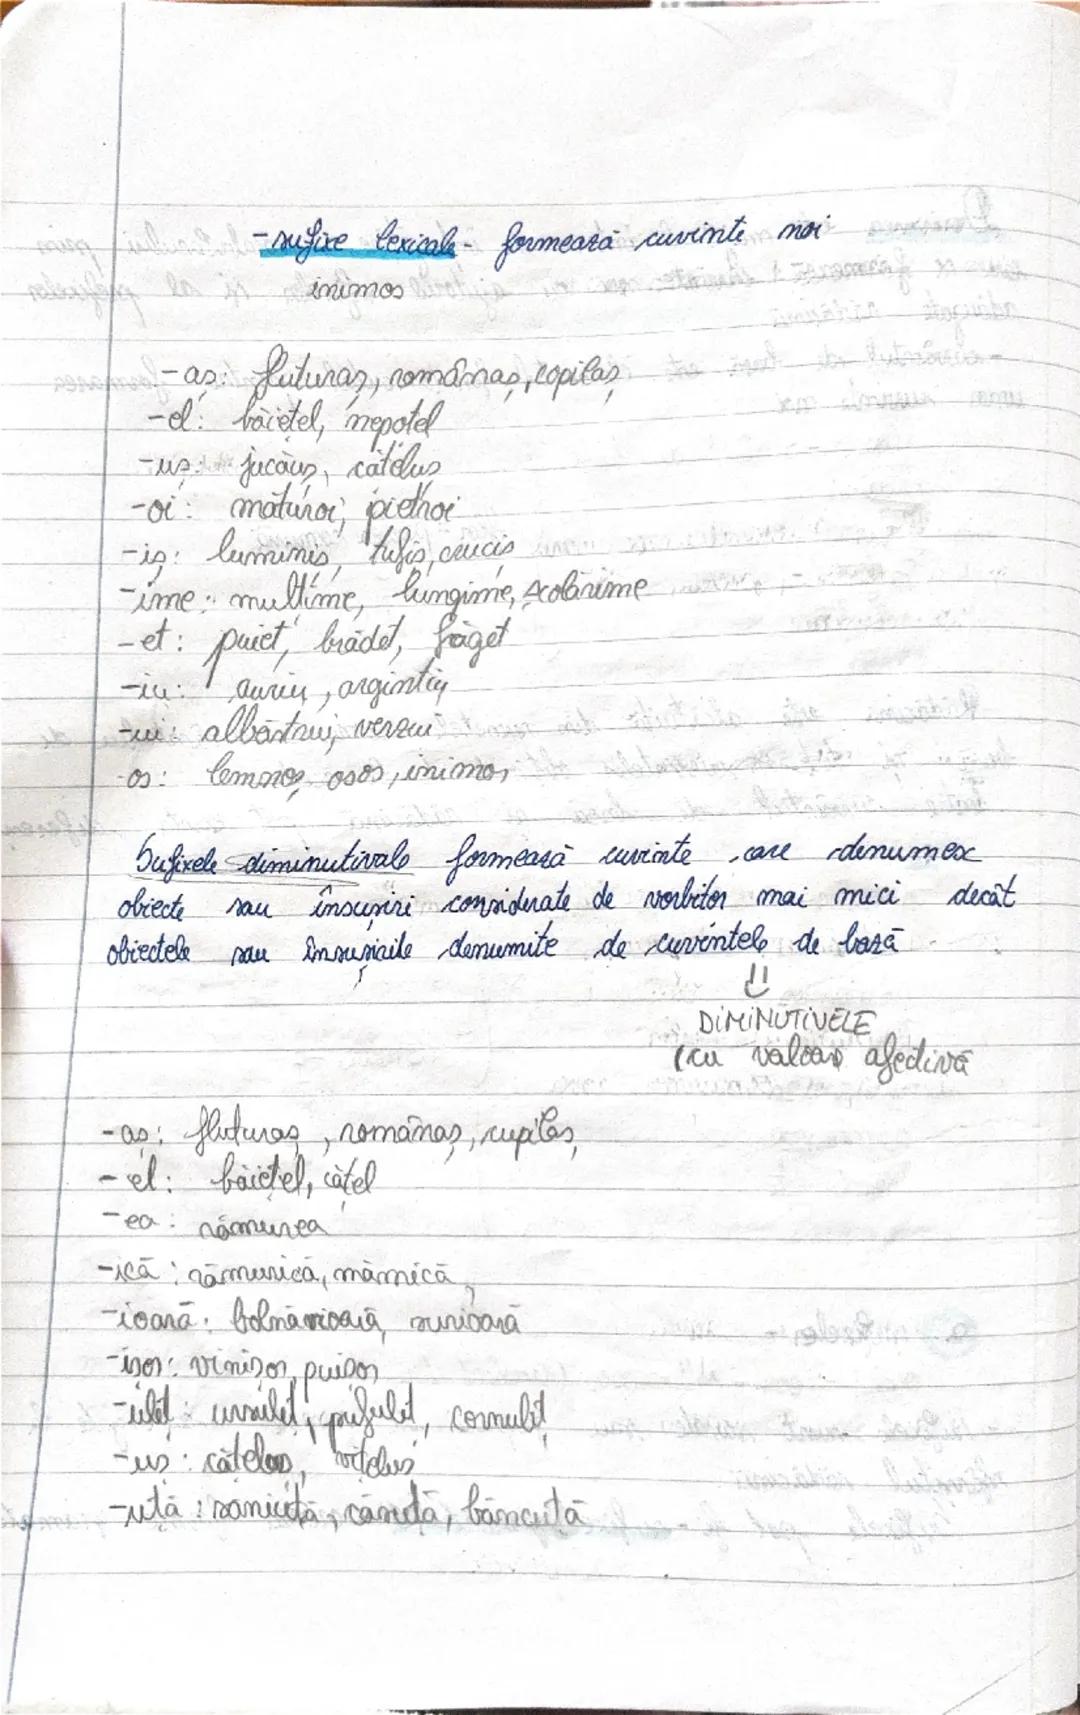 -sufixe lexicale- formează cuvinte noi
inimos
-aș: fluturaș, românaș, copilaș
-el: băiețel, nepoțel
-uș: jucăuș, cățeluș
-oi: măturoi, pietroi
-iș: luminiș, tufiș, cruciș
-ime: mulțime, lungime, școlărime
-et: puiet, brădet, făget
-iu: auriu, argintiu
-ui: albăstrui, verzui
-os: lemnos, osos, inimos
Sufixele diminutivale formează cuvinte care denumesc
obiecte sau însușiri considerate de vorbitor mai mici decât
obiectele sau însușirile denumite de cuvintele de bază
DIMINUTIVELE
(cu valoare afectivă
-aș: fluturaș, românaș, copilaș,
-el: băiețel, cățel
-ea: rămurea
-ică: rămurică, mămică
-ioară: bolnăvioară, surioară
-ișor: vinișor, puișor
-uleț: ursuleț, pufuleț, cornuleț
-uș: cățeluș, vițeluș
-uță: săniuță, cănuță, băncuță